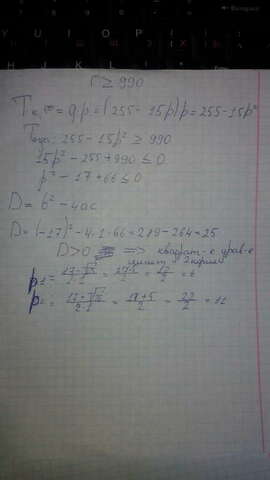 r ≥ 990
= q·p = (255 - 15p)p = 255 - 15p²
255 - 15p² ≥ 990
15p² - 255 + 990 ≤ 0
p² - 17 + 66 ≤ 0
D = b² - 4ac
D = (-17)² - 4·1·66 = 289 - 264 = 25
D > 0 => квадрат-е урав-е
имеет 2 корня
p1 = = = 12/2 = 6
p2 = = 17+5/2 = 22/2 = 11